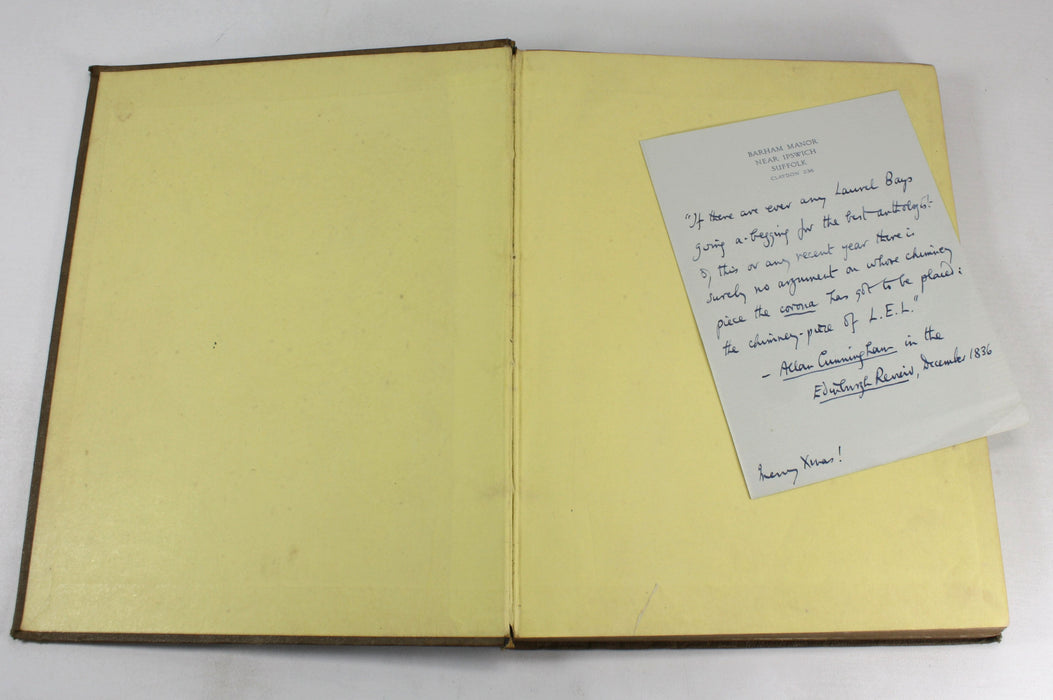 BARHAM MANOR
NEAR IPSWICH
SUFFOLK
CLAYDON 236
"If there are ever any Laurel Bays
going a-begging for the best anthologist
of this or any recent year there is
surely no argument on whose chimney
piece the corona has got to be placed:
the chimney-piece of L.E.L."
- Allan Cunningham in the
Edinburgh Review, December 1836
Merry Xmas!